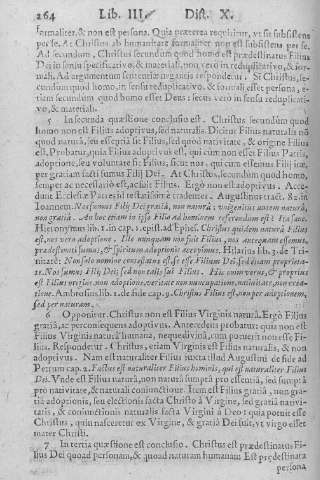 264 Lib. III. Dist. X.
formaliter, & non est persona. Quia præterea requiritur, vt sit subsistens
per se. At Christus ab humanitate formaliter non est subsistens per se.
Ad secundum, Christus secundum quod homo est prædestinatus Filius
Dei in sensu specificatiuo, & materiali, non verò in reduplicatiuo, & for-
mali. Ad argumentum sententia negantis respondetur. Si Christus, se-
cundum quod homo, in sensu reduplicatiuo, & formali esset persona, e-
tiam secundum quod homo esset Deus: secus verò in sensu reduplicati-
vo, & materiali.
5 In secunda quæstione conclusio est. Christus secundum quod
homo non est Filius adoptiuus, sed naturalis. Dicitur Filius naturalis nō
quod naturâ, seu essentiâ sit Filius, sed quod natiuitate, & origine Filius
est. Probatur, quia Filius adoptiuus est, qui cum non esset Filius Patris,
adoptione, seu voluntate fit Filius, sicut nos, qui cum essemus Filij iræ,
per gratiam facti sumus Filij Dei. At Christus, secundum quod homo,
semper ac necessariò est, ac fuit Filius. Ergò non est adoptiuus. Acce-
dunt Ecclesiæ Patres, id testantes & tradentes. Augustinus tract. 82. in
Ioannem. Nos sumus Filij Dei gratiâ, non naturâ: vnigenitus autem naturâ,
non gratiâ. An hoc etiam in ipso Filio ad hominem referendum est? Ita sane.
Hieronymus lib. 1. in cap. 1. epist. ad Ephes. Christus quidem natura Filius
est, nos vero adoptione. Ille nunquam non fuit Filius, nos antequam essemus,
prædestinati sumus, & spiritum adoptionis accepimus. Hilarius lib. 3. de Tri-
nitate: Non solo nomine contestatus est se esse Filium Dei, sed etiam proprieta-
te. Nos sumus Filij Dei; sed non talis hic Filius. Hic enim verus, & proprius
est Filius origine, non adoptione, veritate non nuncupatione, natiuitate, non crea-
tione. Ambrosius lib. 1. de fide cap. 9. Christus Filius est, non per adoptionem,
sed per naturam.
6 Opponitur. Christus non est Filius Virginis naturâ. Ergò Filius
gratiâ, ac per consequens adoptiuus. Antecedens probatur: quia non est
Filius Virginis naturâ humanâ, neque diuinâ, cum potuerit non esse Fi-
lius. Respondetur. Christus, etiam Virginis est Filius naturalis, & non
adoptiuus. Nam est naturaliter Filius iuxta illud Augustini de fide ad
Petrum cap. 2. Factus est naturaliter Filius hominis, qui est naturaliter Filius
Dei. Vnde est Filius naturâ, non naturâ sumptâ pro essentia, sed sumptâ prò
natiuitate, & naturali coniunctione. Item est Filius gratiâ, non gra-
tiâ adoptionis, seu electionis facta Christo à Virgine, sed gratiâ natiui-
tatis, & coniunctionis naturalis facta Virgini à Deo: quia potuit esse
Christus, quin nasceretur ex Virgine, & gratiâ Dei fuit, vt virgo esset
mater Christi.
7 In tertia quæstione est conclusio. Christus est prædestinatus Fi-
lius Dei quoad personam, & quoad naturam humanam. Est prædestinata
persona